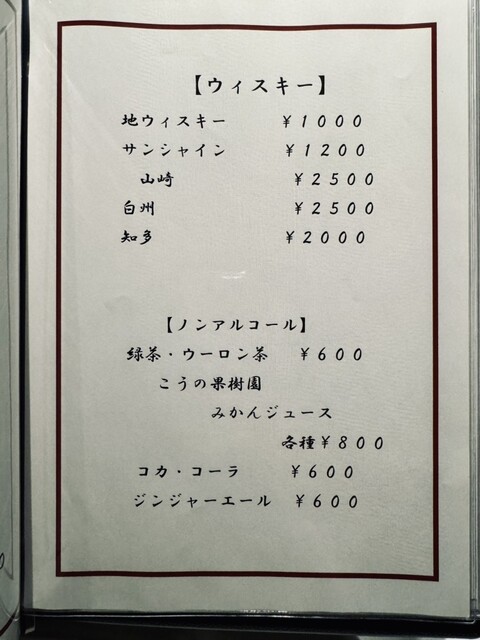 【ウィスキー】
地ウィスキー ￥１０００
サンシャイン ￥１２００
山崎 ￥２５００
白州 ￥２５００
知多 ￥２０００
【ノンアルコール】
緑茶・ウーロン茶 ￥６００
こうの果樹園
みかんジュース
各種￥８００
コカ・コーラ ￥６００
ジンジャーエール ￥６００